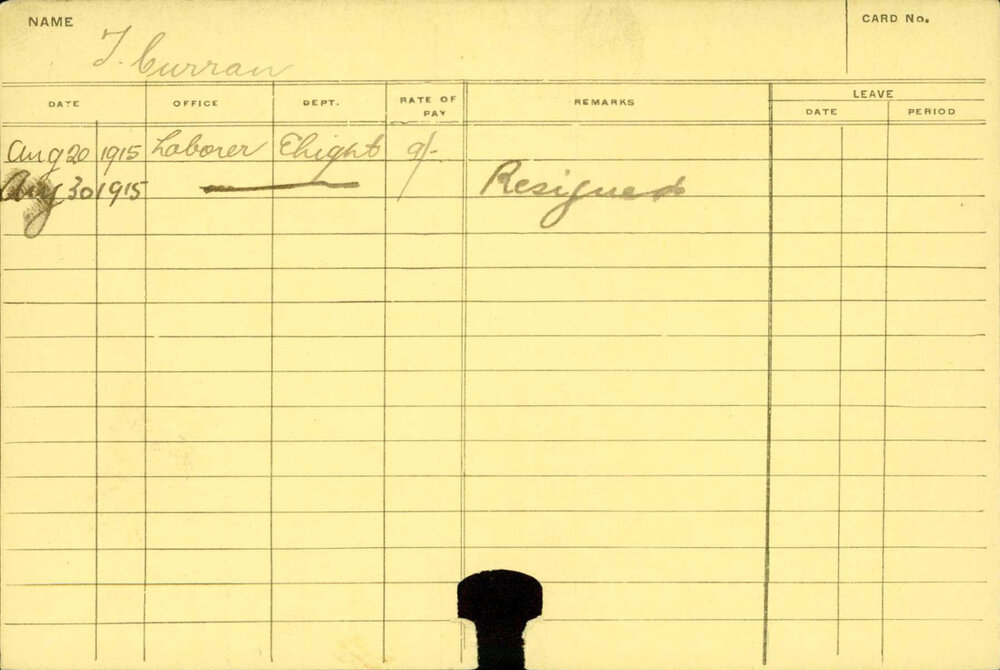 NAME
CARD No.
T. Curran
DATE OFFICE DEPT. RATE OF PAY REMARKS LEAVE
DATE PERIOD
Aug 20 1915 Laborer 9/-
Aug 30 1915 Resigned